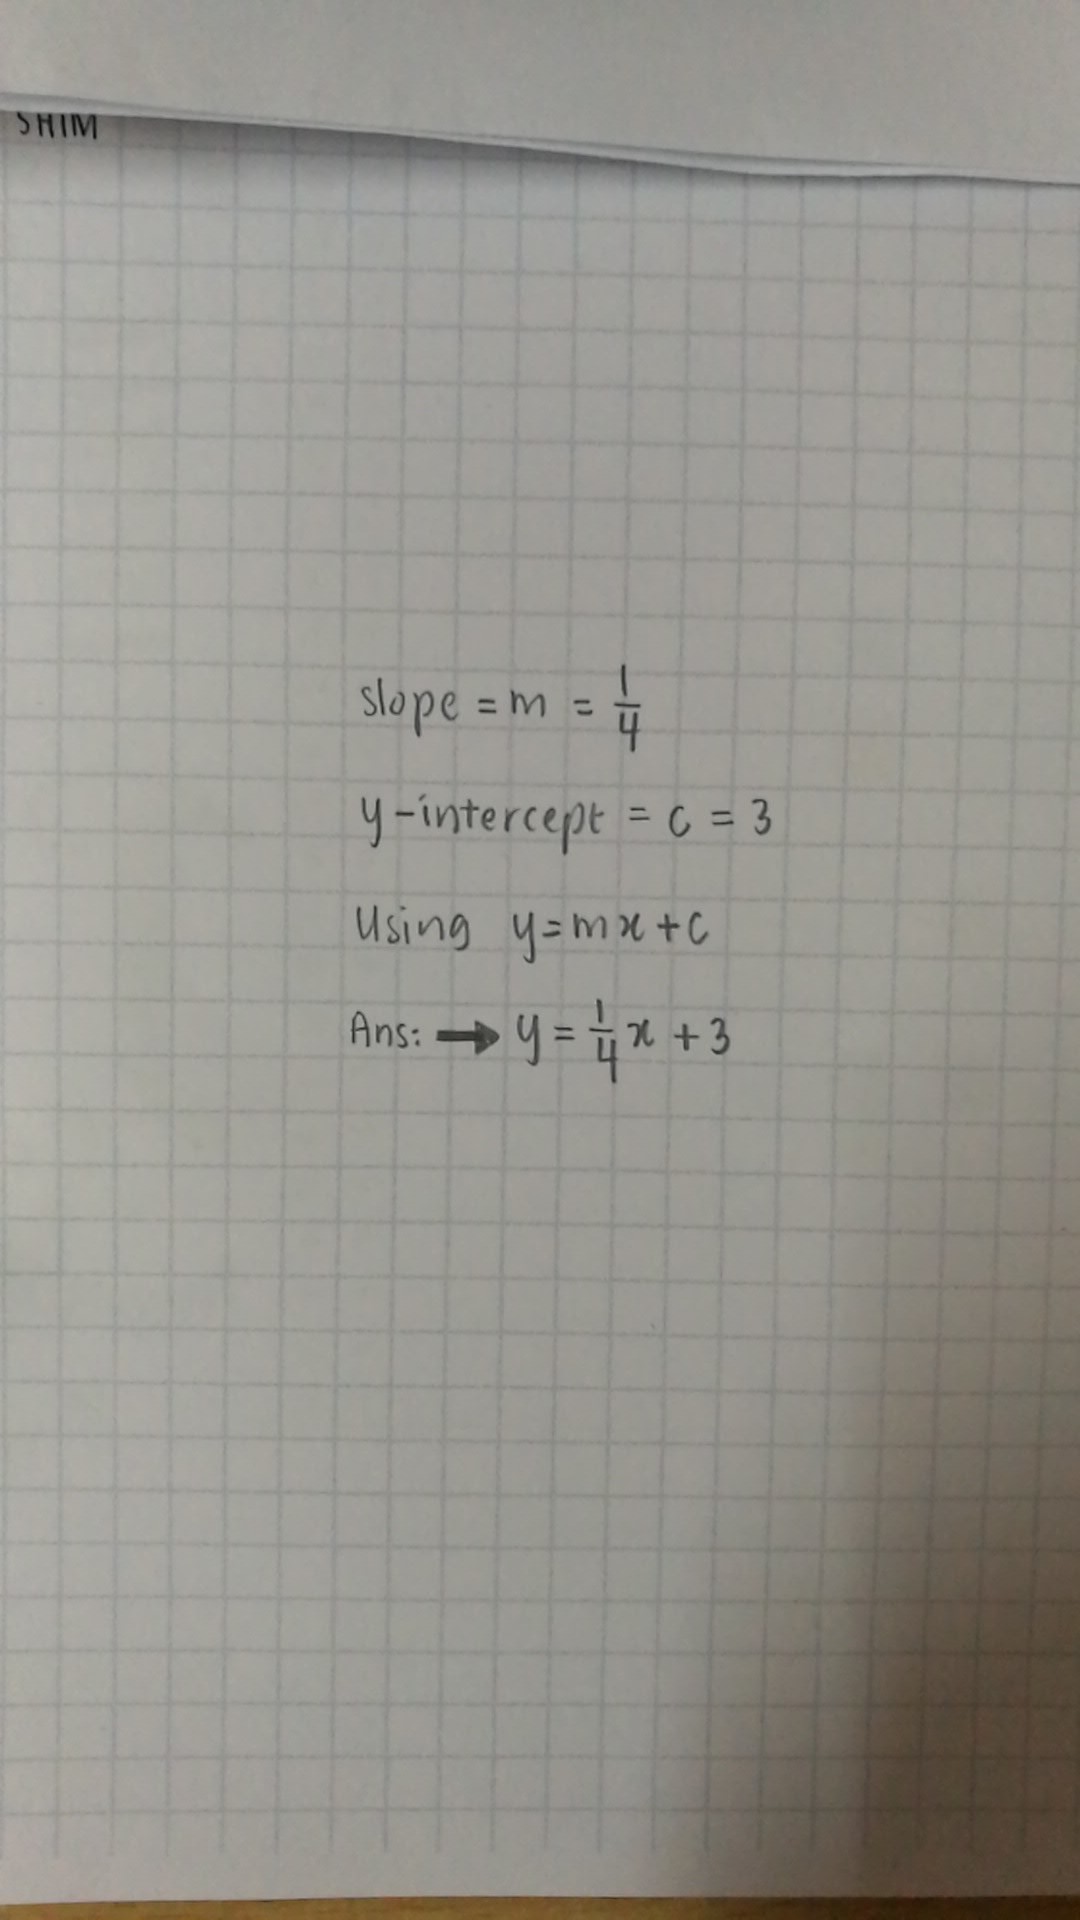 SHIM
slope = m = 1/4
y-intercept = c = 3
Using y=mx+c
Ans: → y = 1/4 x + 3